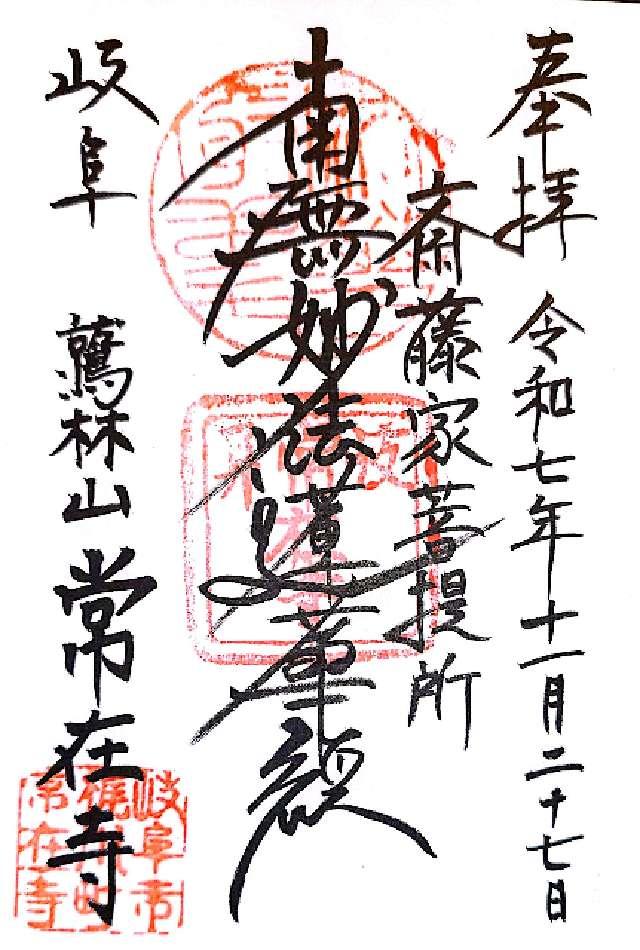 奉拝 令和七年十一月二十七日
斎藤家菩提所
南無妙法蓮華経
岐阜 鷲林山 常在寺
岐阜市
梶川町
常在寺